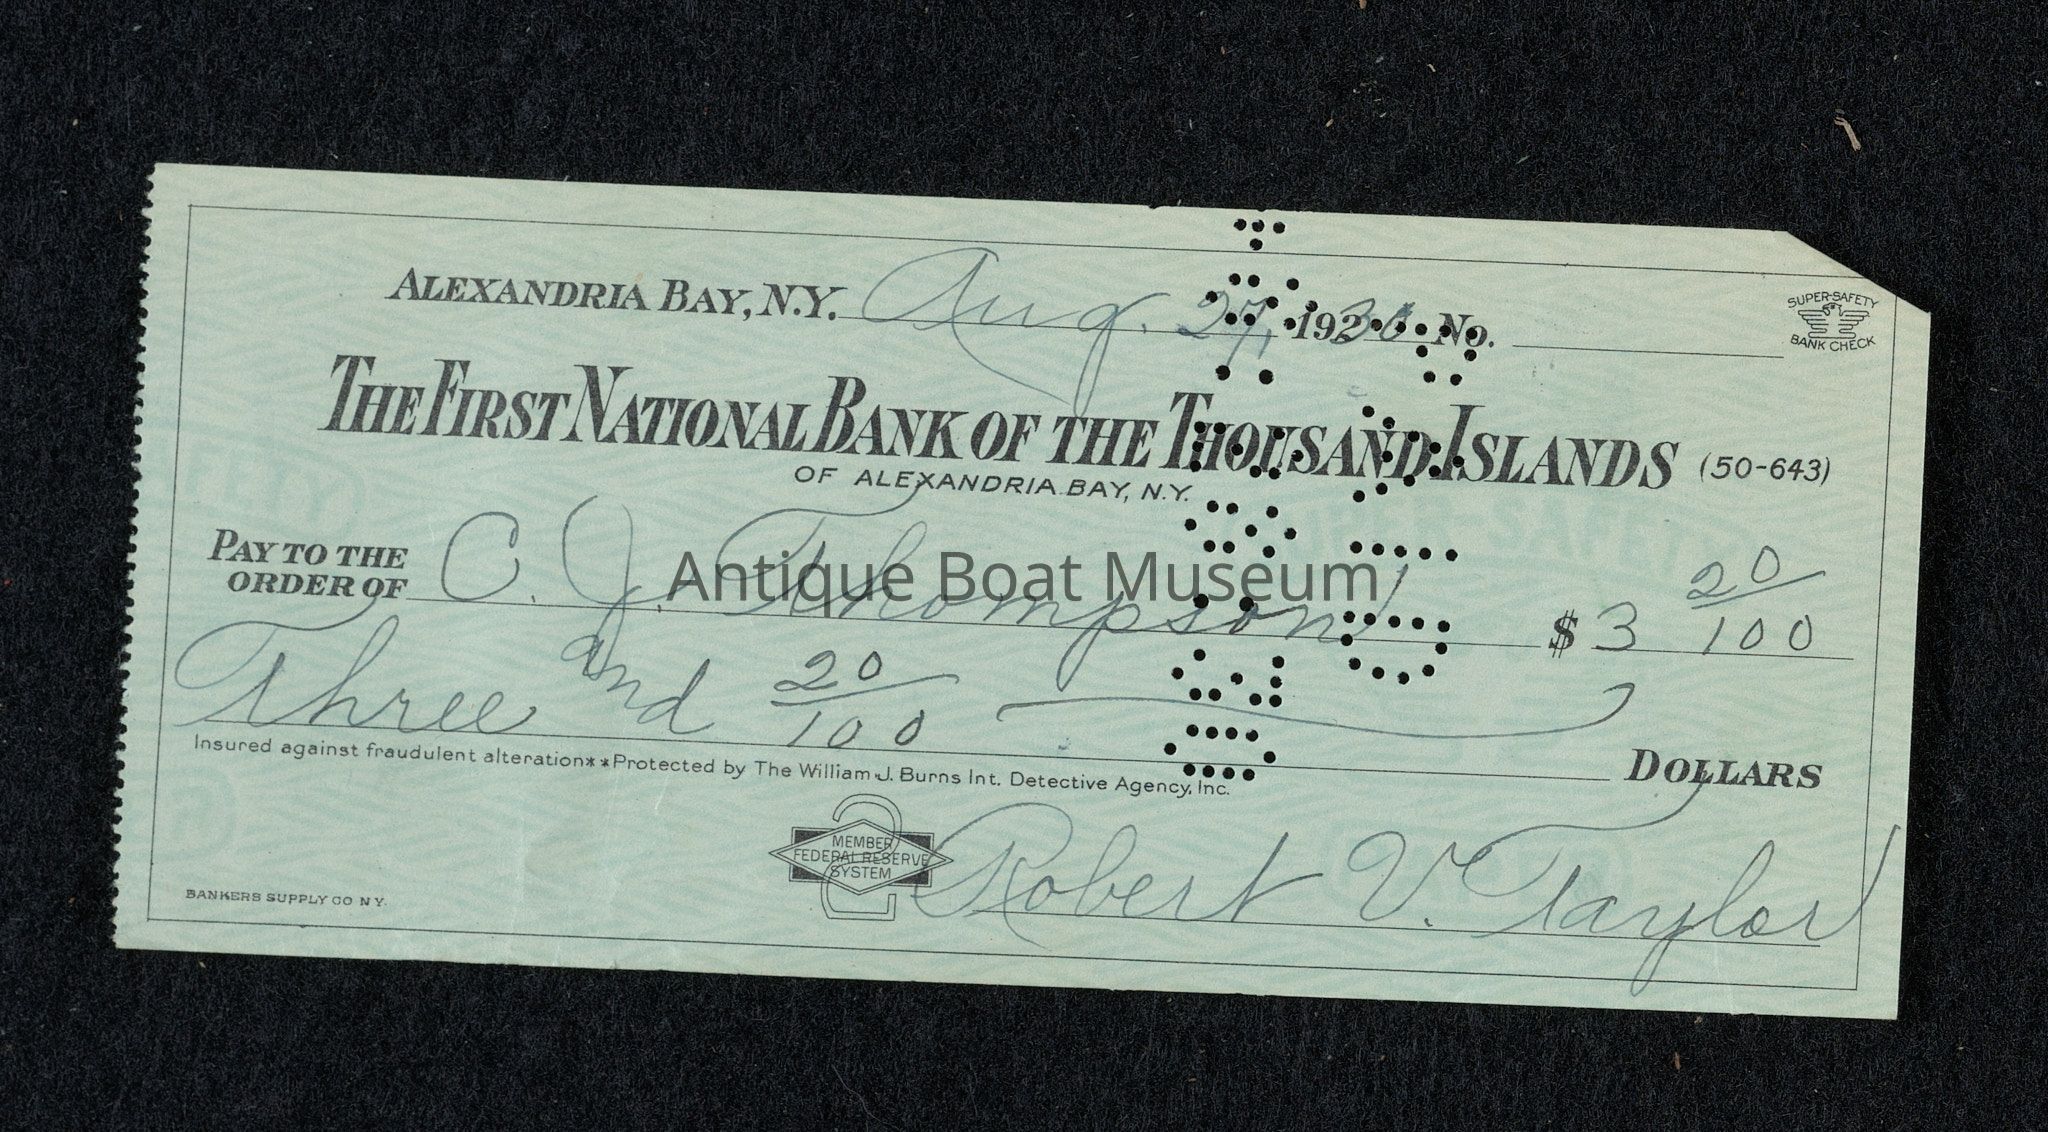 ALEXANDRIA BAY, N.Y. Aug. 27, 1930 No.
SUPER-SAFETY
BANK CHECK
THE FIRST NATIONAL BANK OF THE THOUSAND ISLANDS (50-643)
OF ALEXANDRIA BAY, N.Y.
PAY TO THE
ORDER OF C. J. Thompson $ 3 20/100
Antique Boat Museum
Three and 20/100 DOLLARS
Insured against fraudulent alteration**Protected by The William J. Burns Int. Detective Agency, Inc.
MEMBER
FEDERAL RESERVE
SYSTEM
2
Robert V. Taylor
BANKERS SUPPLY CO N.Y.